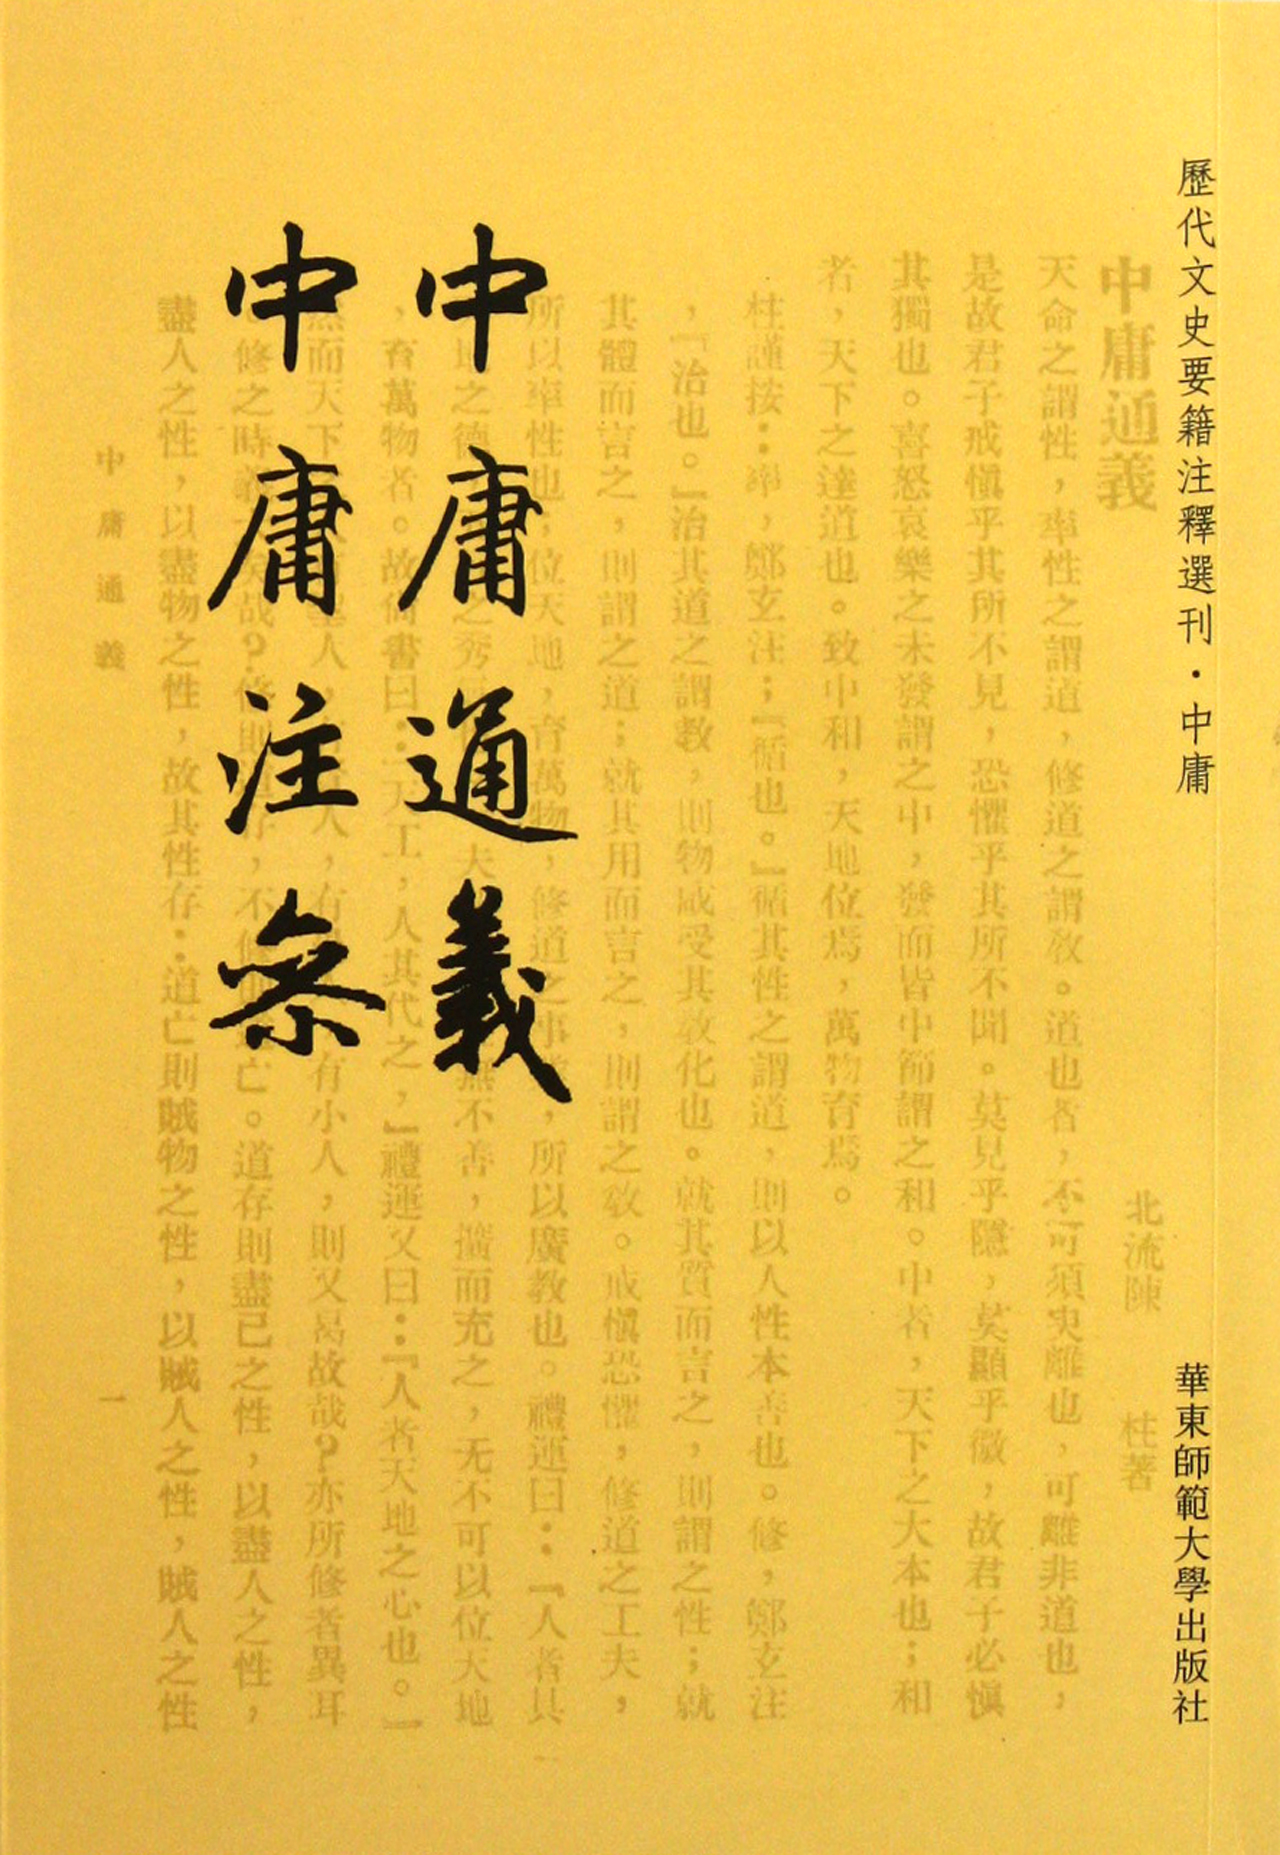 歷代文史要籍注釋選刊·中庸
華東師範大學出版社
中庸通義
中庸注參
中庸通義
北流陳　柱著
天命之謂性，率性之謂道，修道之謂敎。道也者，不可須臾離也，可離非道也，
是故君子戒愼乎其所不見，恐懼乎其所不聞。莫見乎隱，莫顯乎微，故君子必愼
其獨也。喜怒哀樂之未發謂之中，發而皆中節謂之和。中者，天下之大本也；和
者，天下之達道也。致中和，天地位焉，萬物育焉。
柱謹按：率，鄭玄注；『循也。』循其性之謂道，則以人性本善也。修，鄭玄注
，『治也。』治其道之謂敎，則物咸受其敎化也。就其質而言之，則謂之性；就
其體而言之，則謂之道；就其用而言之，則謂之敎。戒愼恐懼，修道之工夫，
所以率性也；位天地，育萬物，修道之事，所以廣教也。禮運曰：『人者具
之德之秀夫無不善，擴而充之，无不可以位天地
，育萬物者。故尙書曰：『天工，人其代之，』禮運又曰：『人者天地之心也。』
然而天下人，有小人，則又曷故哉？亦所修者異耳
修之時義哉？修則存，不修亡。道存則盡己之性，以盡人之性，
盡人之性，以盡物之性，故其性存：道亡則賊物之性，以賊人之性，賊人之性
中庸通義
一